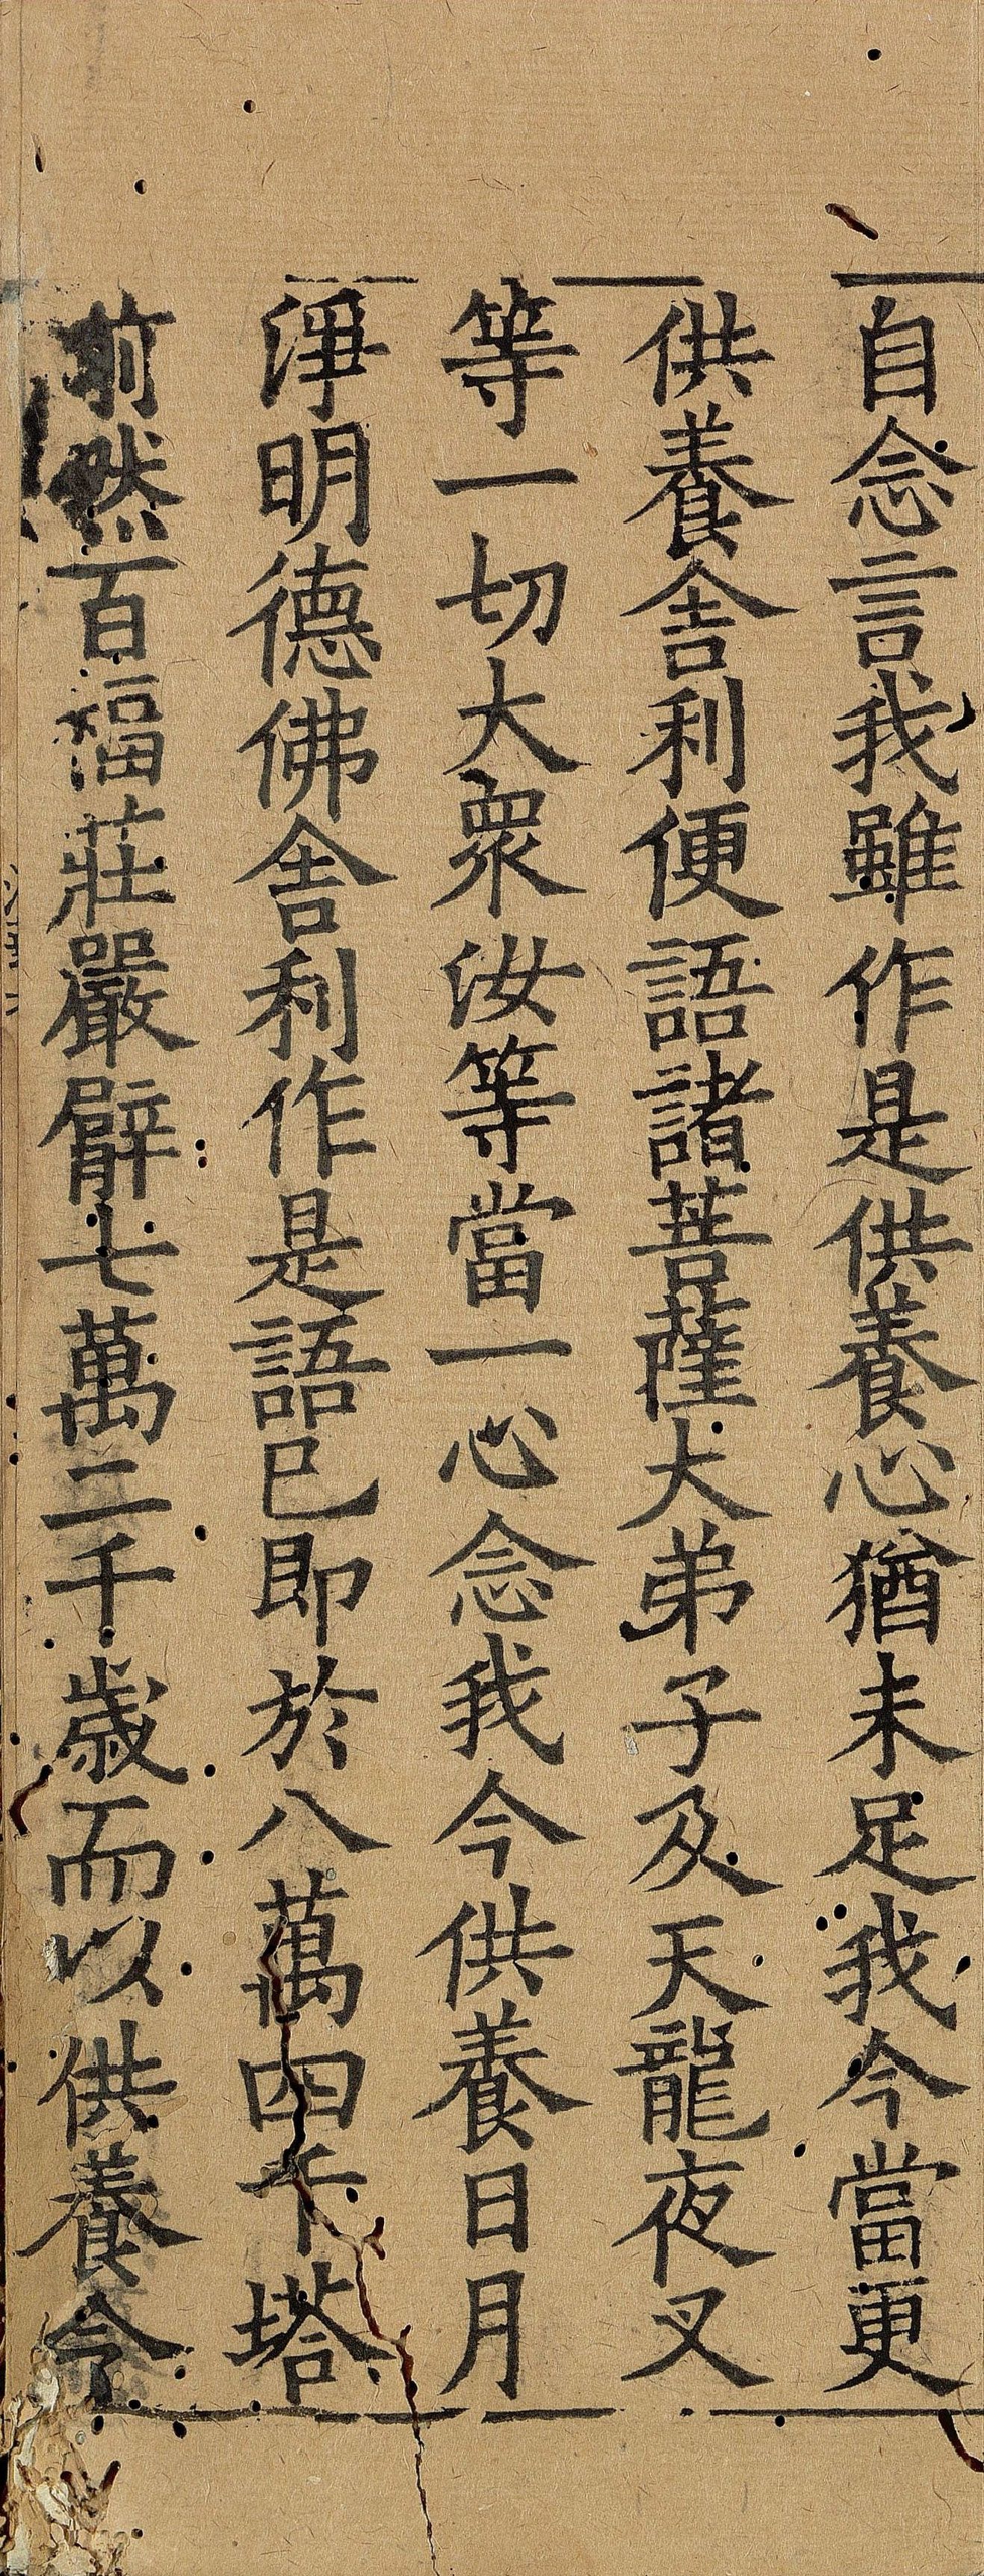 自念言我雖作是供養心猶未足我今當更
供養舍利便語諸菩薩大弟子及天龍夜叉
等一切大衆汝等當一心念我今供養日月
淨明德佛舍利作是語已即於八萬四千塔
前然百福莊嚴臂七萬二千歲而以供養令